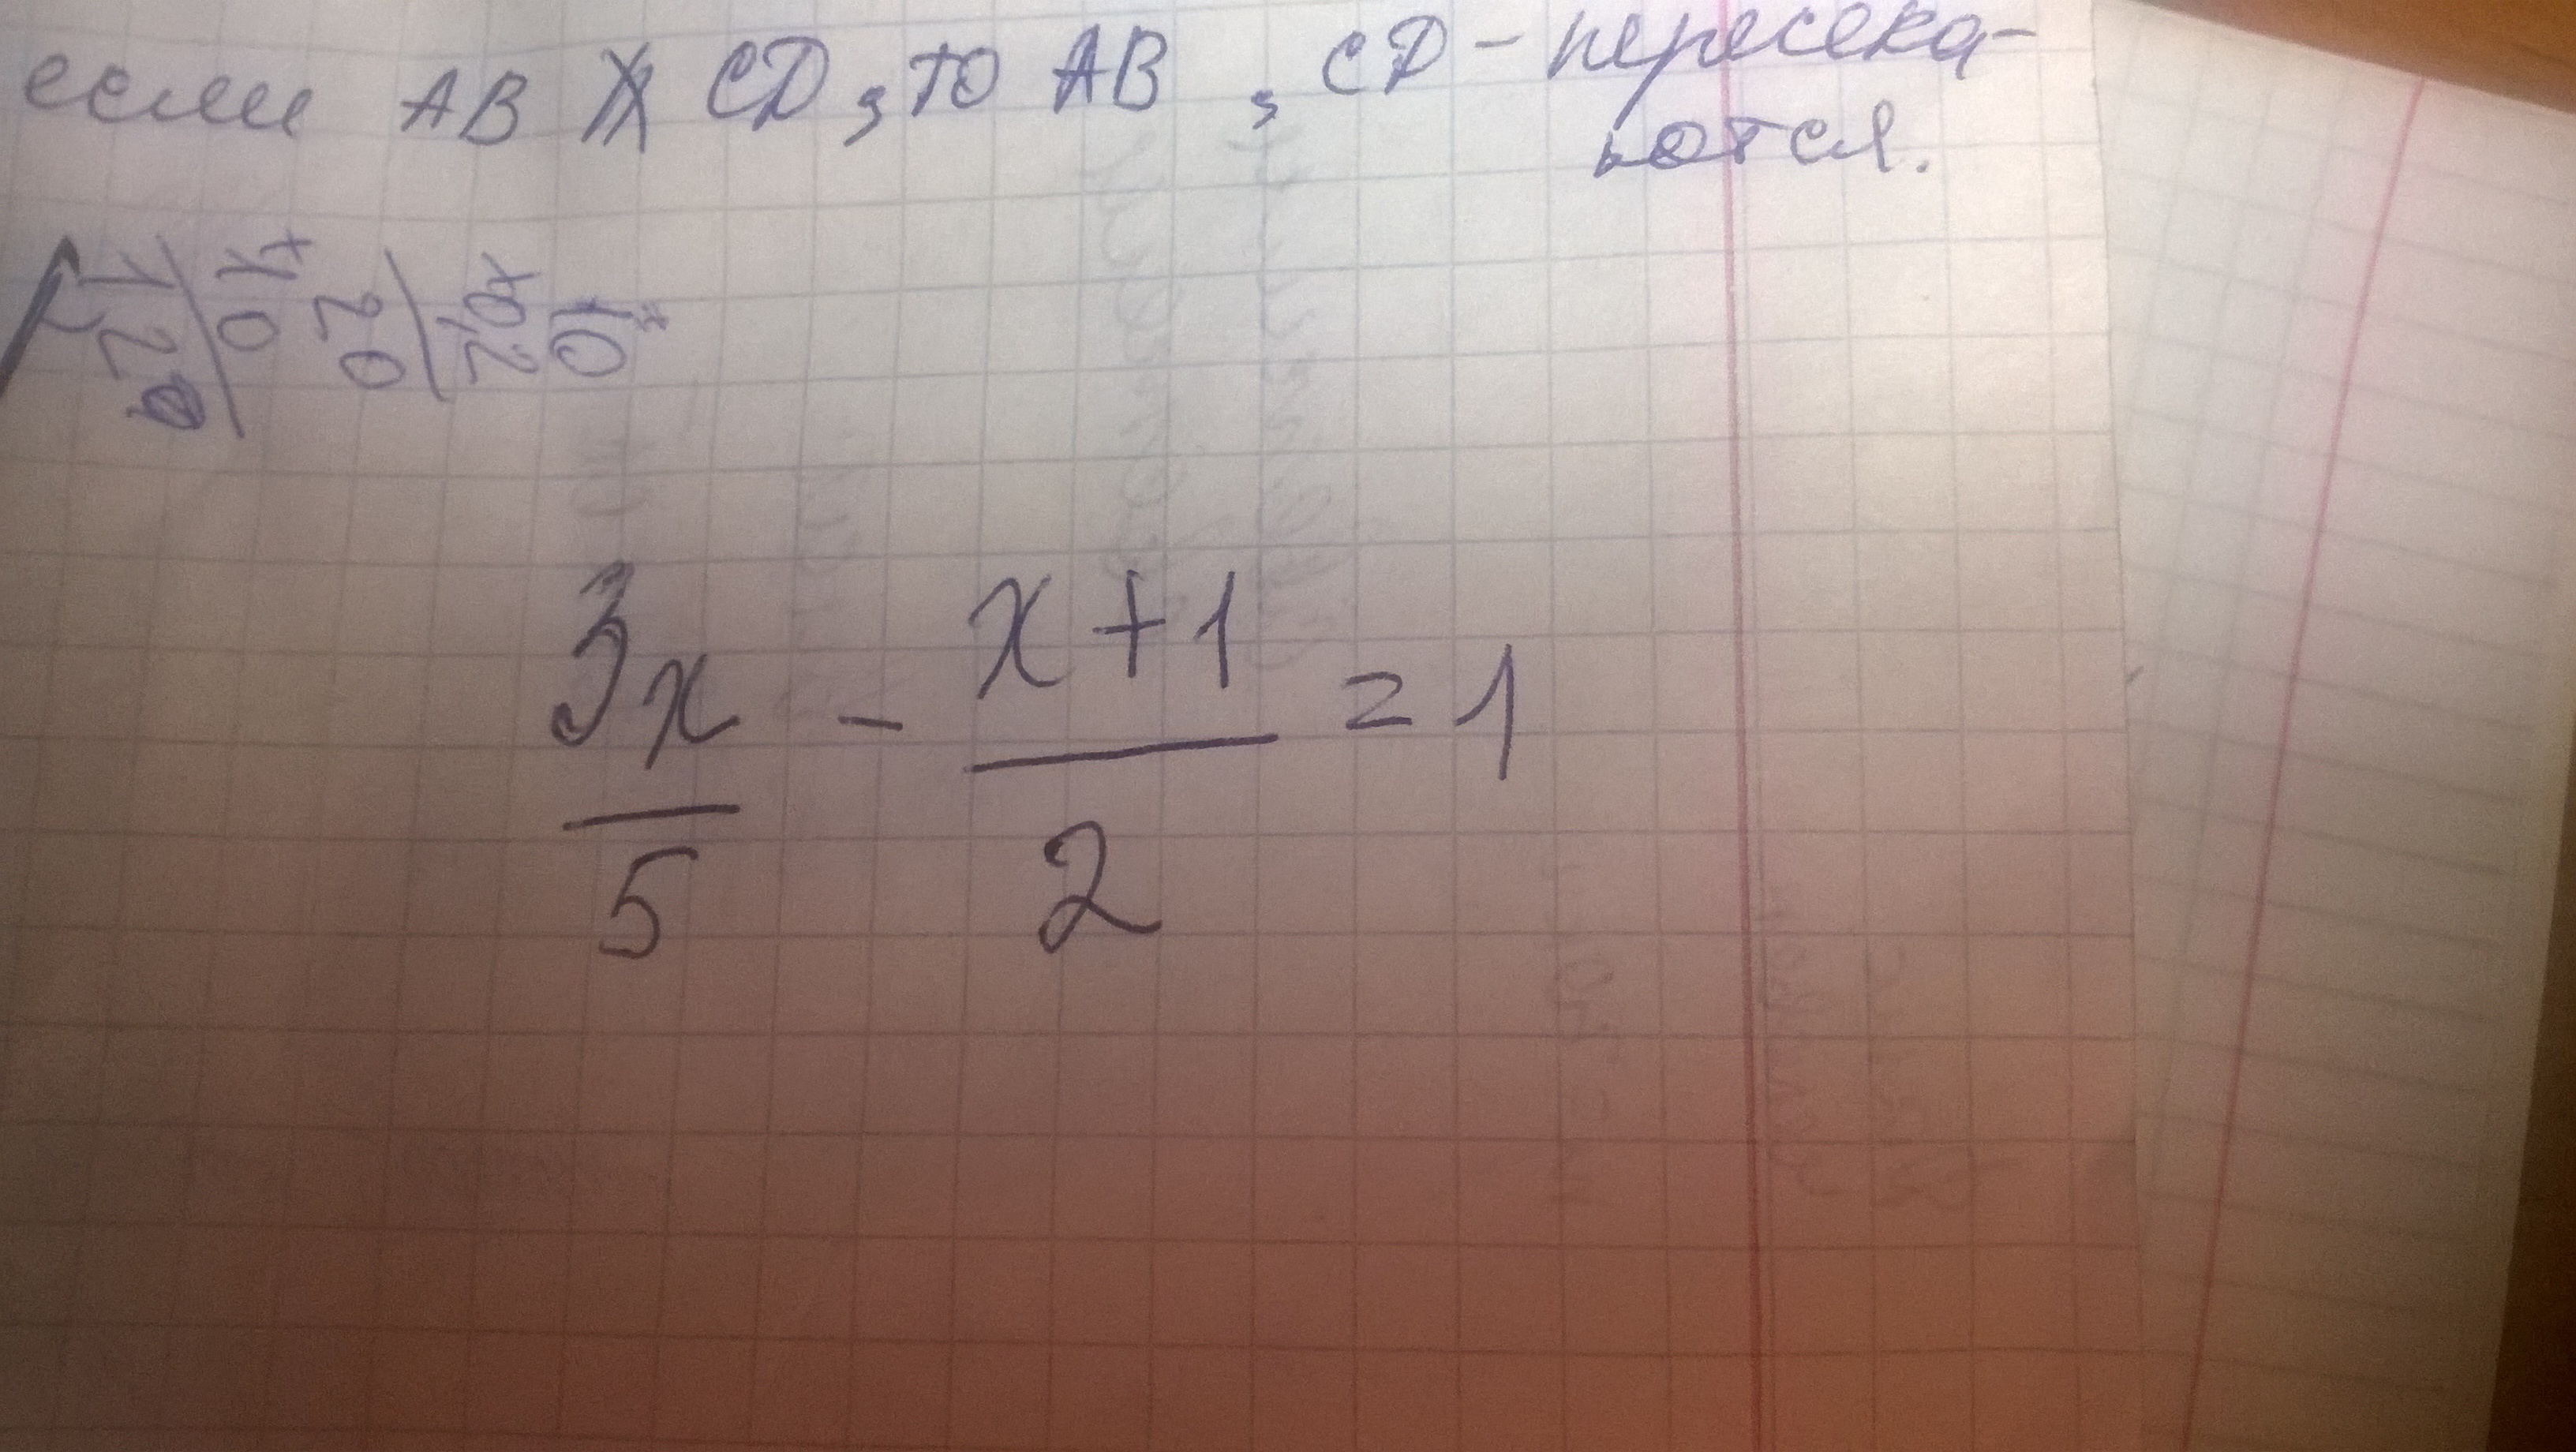 если AB ∦ CD, то AB, CD - пересека-
ются.
3x/5 - x+1/2 = 1